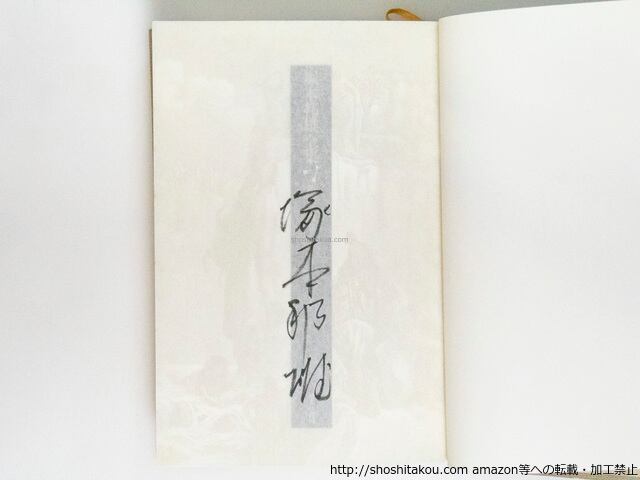 塚本邦雄
shoshitakou.com
http://shoshitakou.com amazon等への転載・加工禁止